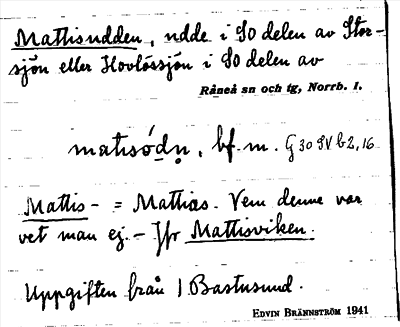 Mattisudden, udde i SO delen av Stor-
sjön eller Hovlössjön i SO delen av
Råneå sn och tg, Norrb. l.
matisódṇ, bf. m. G 30 SV b2,16
Mattis- = Mattias. Vem denne var
vet man ej. - Jfr Mattisviken.
Uppgiften från 1 Bastusund.
EDVIN BRÄNNSTRÖM 1941